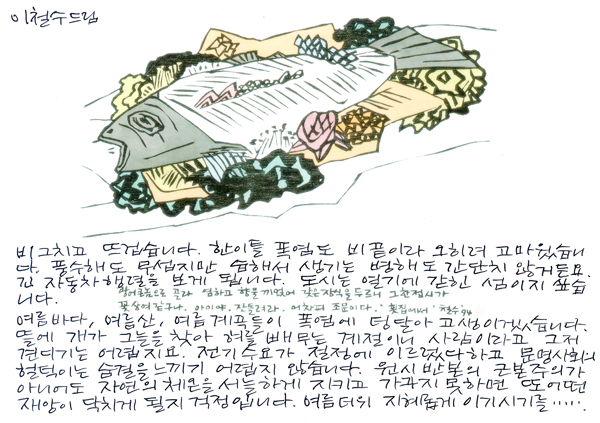 이철수드림
비그치고 뜨겁습니다. 한이틀 폭염도 비끝이라 오히려 고마웠습니
다. 풍수해도 무섭지만 습해서 생기는 병해도 간단치 않거든요.
긴 자동차행렬을 보게 됩니다. 도시는 열기에 갇힌 섬이지 싶습
니다.
꽃상여 같구나. 아이야, 잔 들어라. 어차피 조문이다. ' 횟집에서' 철수94
여름바다, 여름산, 여름계곡들이 폭염에 덩달아 고생이겠습니다.
뜰에 개가 그늘을 찾아 혀를 빼무는 계절이니 사람이라고 그저
견디기는 어렵지요. 전기수요가 절정에 이르렀다하고 문명사회의
헐떡이는 숨결을 느끼기 어렵지 않습니다. 원시반본의 근본주의가
아니어도 자연의 체온을 서늘하게 지키고 가꾸지 못하면 또 어떤
재앙이 닥치게 될지 걱정입니다. 여름더위 지혜롭게 이기시기를.....